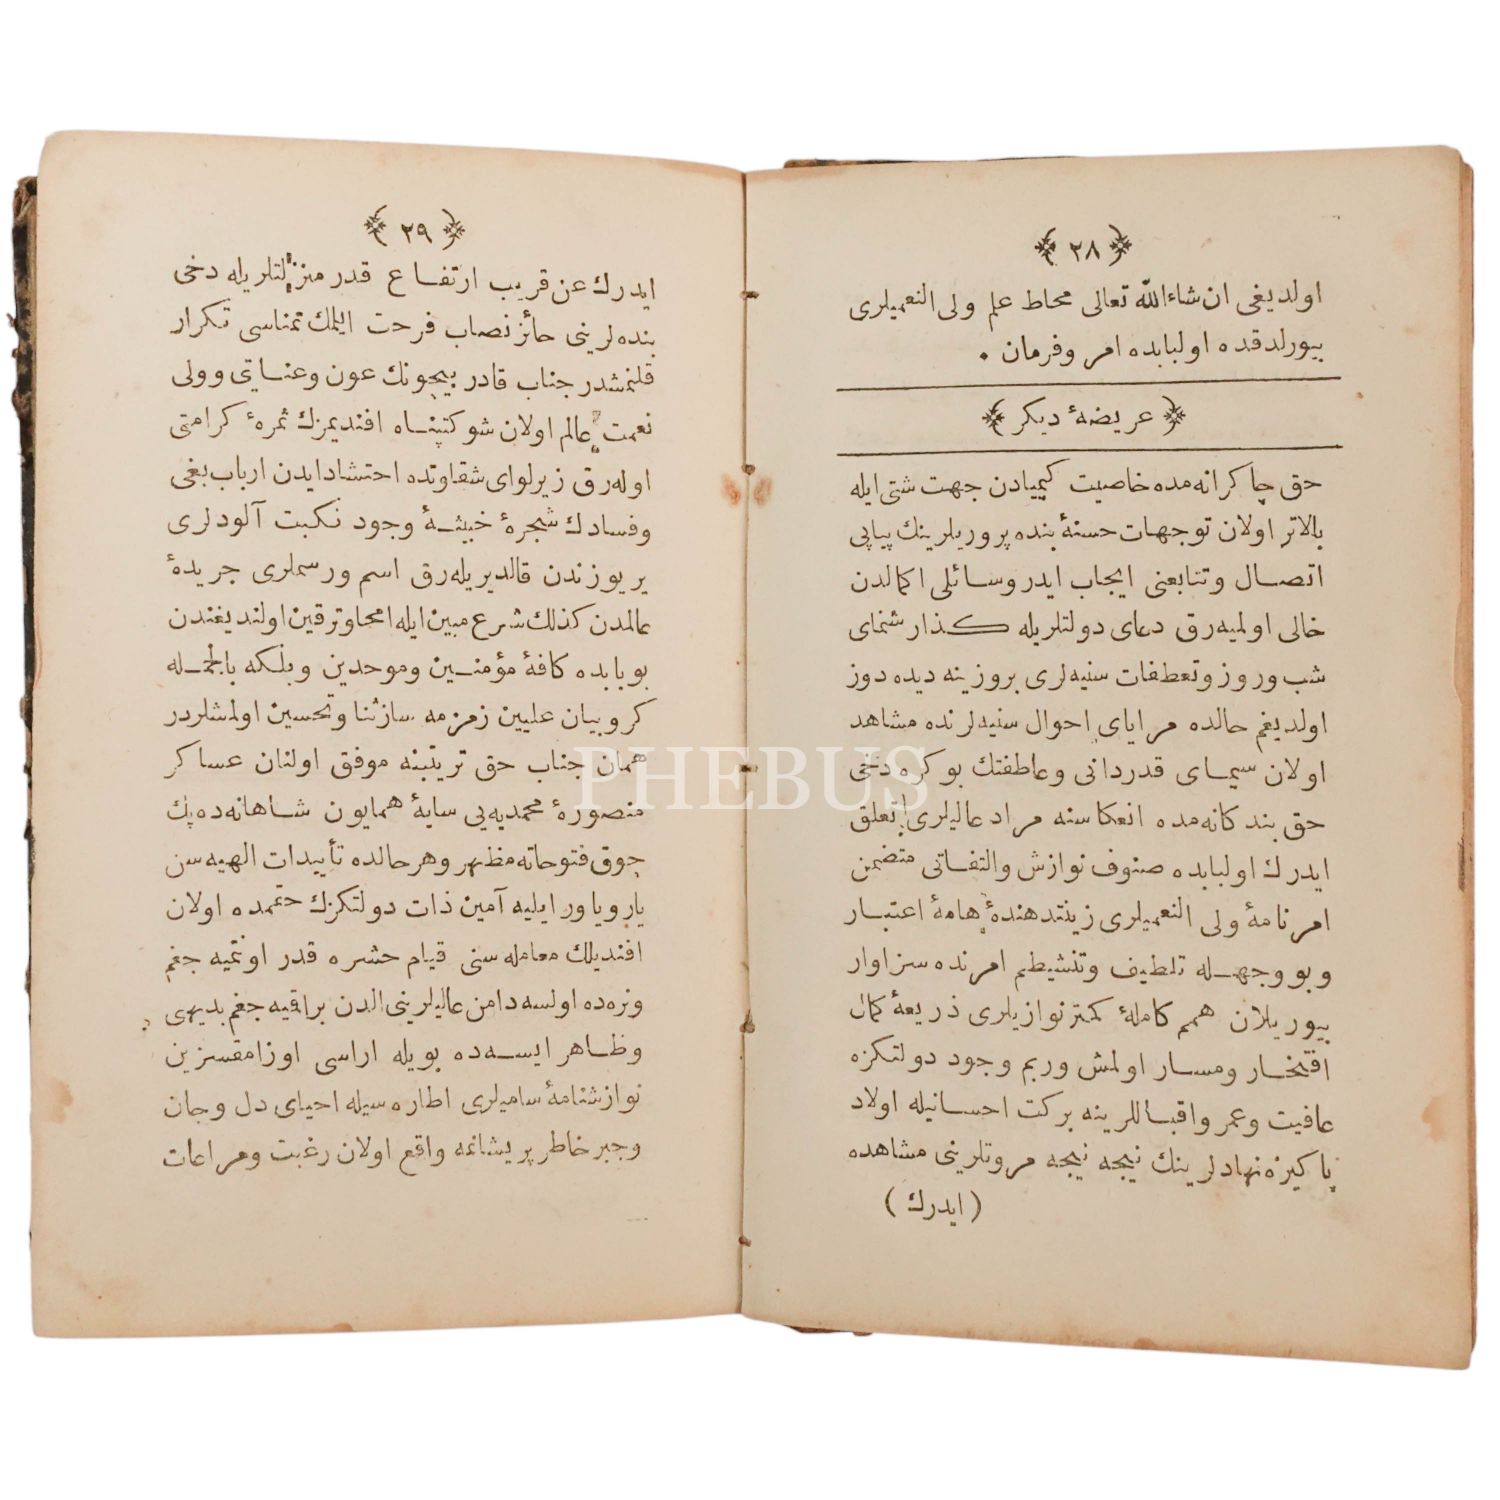 ﴿ ٢٨ ﴾
اولديغى ان شاءالله تعالى محاط علم ولى النعميلرى
بيورلدقده اولبابده امر وفرمان .
﴿ عريضهٔ ديكر ﴾
حق چاكرانه‌مده خاصيت كيميادن جهت شتى ايله
بالاتر اولان توجهات حسنهٔ بنده پروريلرينك پياپى
اتصال وتتابعنى ايجاب ايدر وسائلى اكمالدن
خالى اولميه‌رق دعاى دولتلريله كذارشنماى
شب وروز وتعطفات سنيه‌لرى بروزينه ديده دوز
اولديغم حالده مراياى احوال سنيه‌لرنده مشاهد
اولان سيماى قدردانى وعاطفتك بوكره دخى
حق بندكانه‌مده انعكاسنه مراد عاليلرى تعلق
ايدرك اولبابده صنوف نوازش والتفاتى متضمن
امرنامهٔ ولى النعميلرى زينتدهندهٔ هامهٔ اعتبار
وبو وجهله تلطيف وتنشيطم امرنده سزاوار
بيوريلان همم كاملهٔ كمترنوازيلرى ذريعهٔ كمال
افتخار ومسار اولمش وربم وجود دولتكزه
عافيت وعمر واقباللرينه بركت احسانيله اولاد
پاكيزه نهادلرينك نيجه نيجه مروتلرينى مشاهده
( ايدرك )
﴿ ٢٩ ﴾
ايدرك عن قريب ارتفاع قدر منزلتلريله دخى
بنده‌لرينى حائز نصاب فرحت ايلمك تمناسى تكرار
قلنمشدر جناب قادر بيچونك عون وعناياتى وولى
نعمت عالم اولان شوكتپناه افنديمزك ثمرهٔ كرامتى
اوله‌رق زير لواى شقاوتده احتشاد ايدن ارباب بغى
وفسادك شجرهٔ خبيثهٔ وجود نكبت آلودلرى
ير يوزندن قالديريله‌رق اسم ورسملرى جريدهٔ
عالمدن كذلك شرع مبين ايله امحا وترقين اولنديغندن
بوبابده كافهٔ مؤمنين وموحدين وبلكه بالجمله
كروبيان عليين زمزمه ساز ثنا وتحسين اولمشلردر
همان جناب حق ترتيبنه موفق اولنان عساكر
منصورهٔ محمديه‌يى سايهٔ همايون شاهانه‌ده پك
چوق فتوحاته مظهر وهر حالده تأييدات الهيه سن
يار وياور ايليه آمين ذات دولتكزك حقمده اولان
افنديلك معامله سنى قيام حشره قدر اونتميه جغم
ونره‌ده اولسه دامن عاليلرينى الدن براقيه جغم بديهى
وظاهر ايسه‌ده بويله اراسى اوزامقسزين
نوازشنامهٔ ساميلرى اطاره سيله احياى دل وجان
وجبر خاطر پريشانمه واقع اولان رغبت ومراعات
PHEBUS